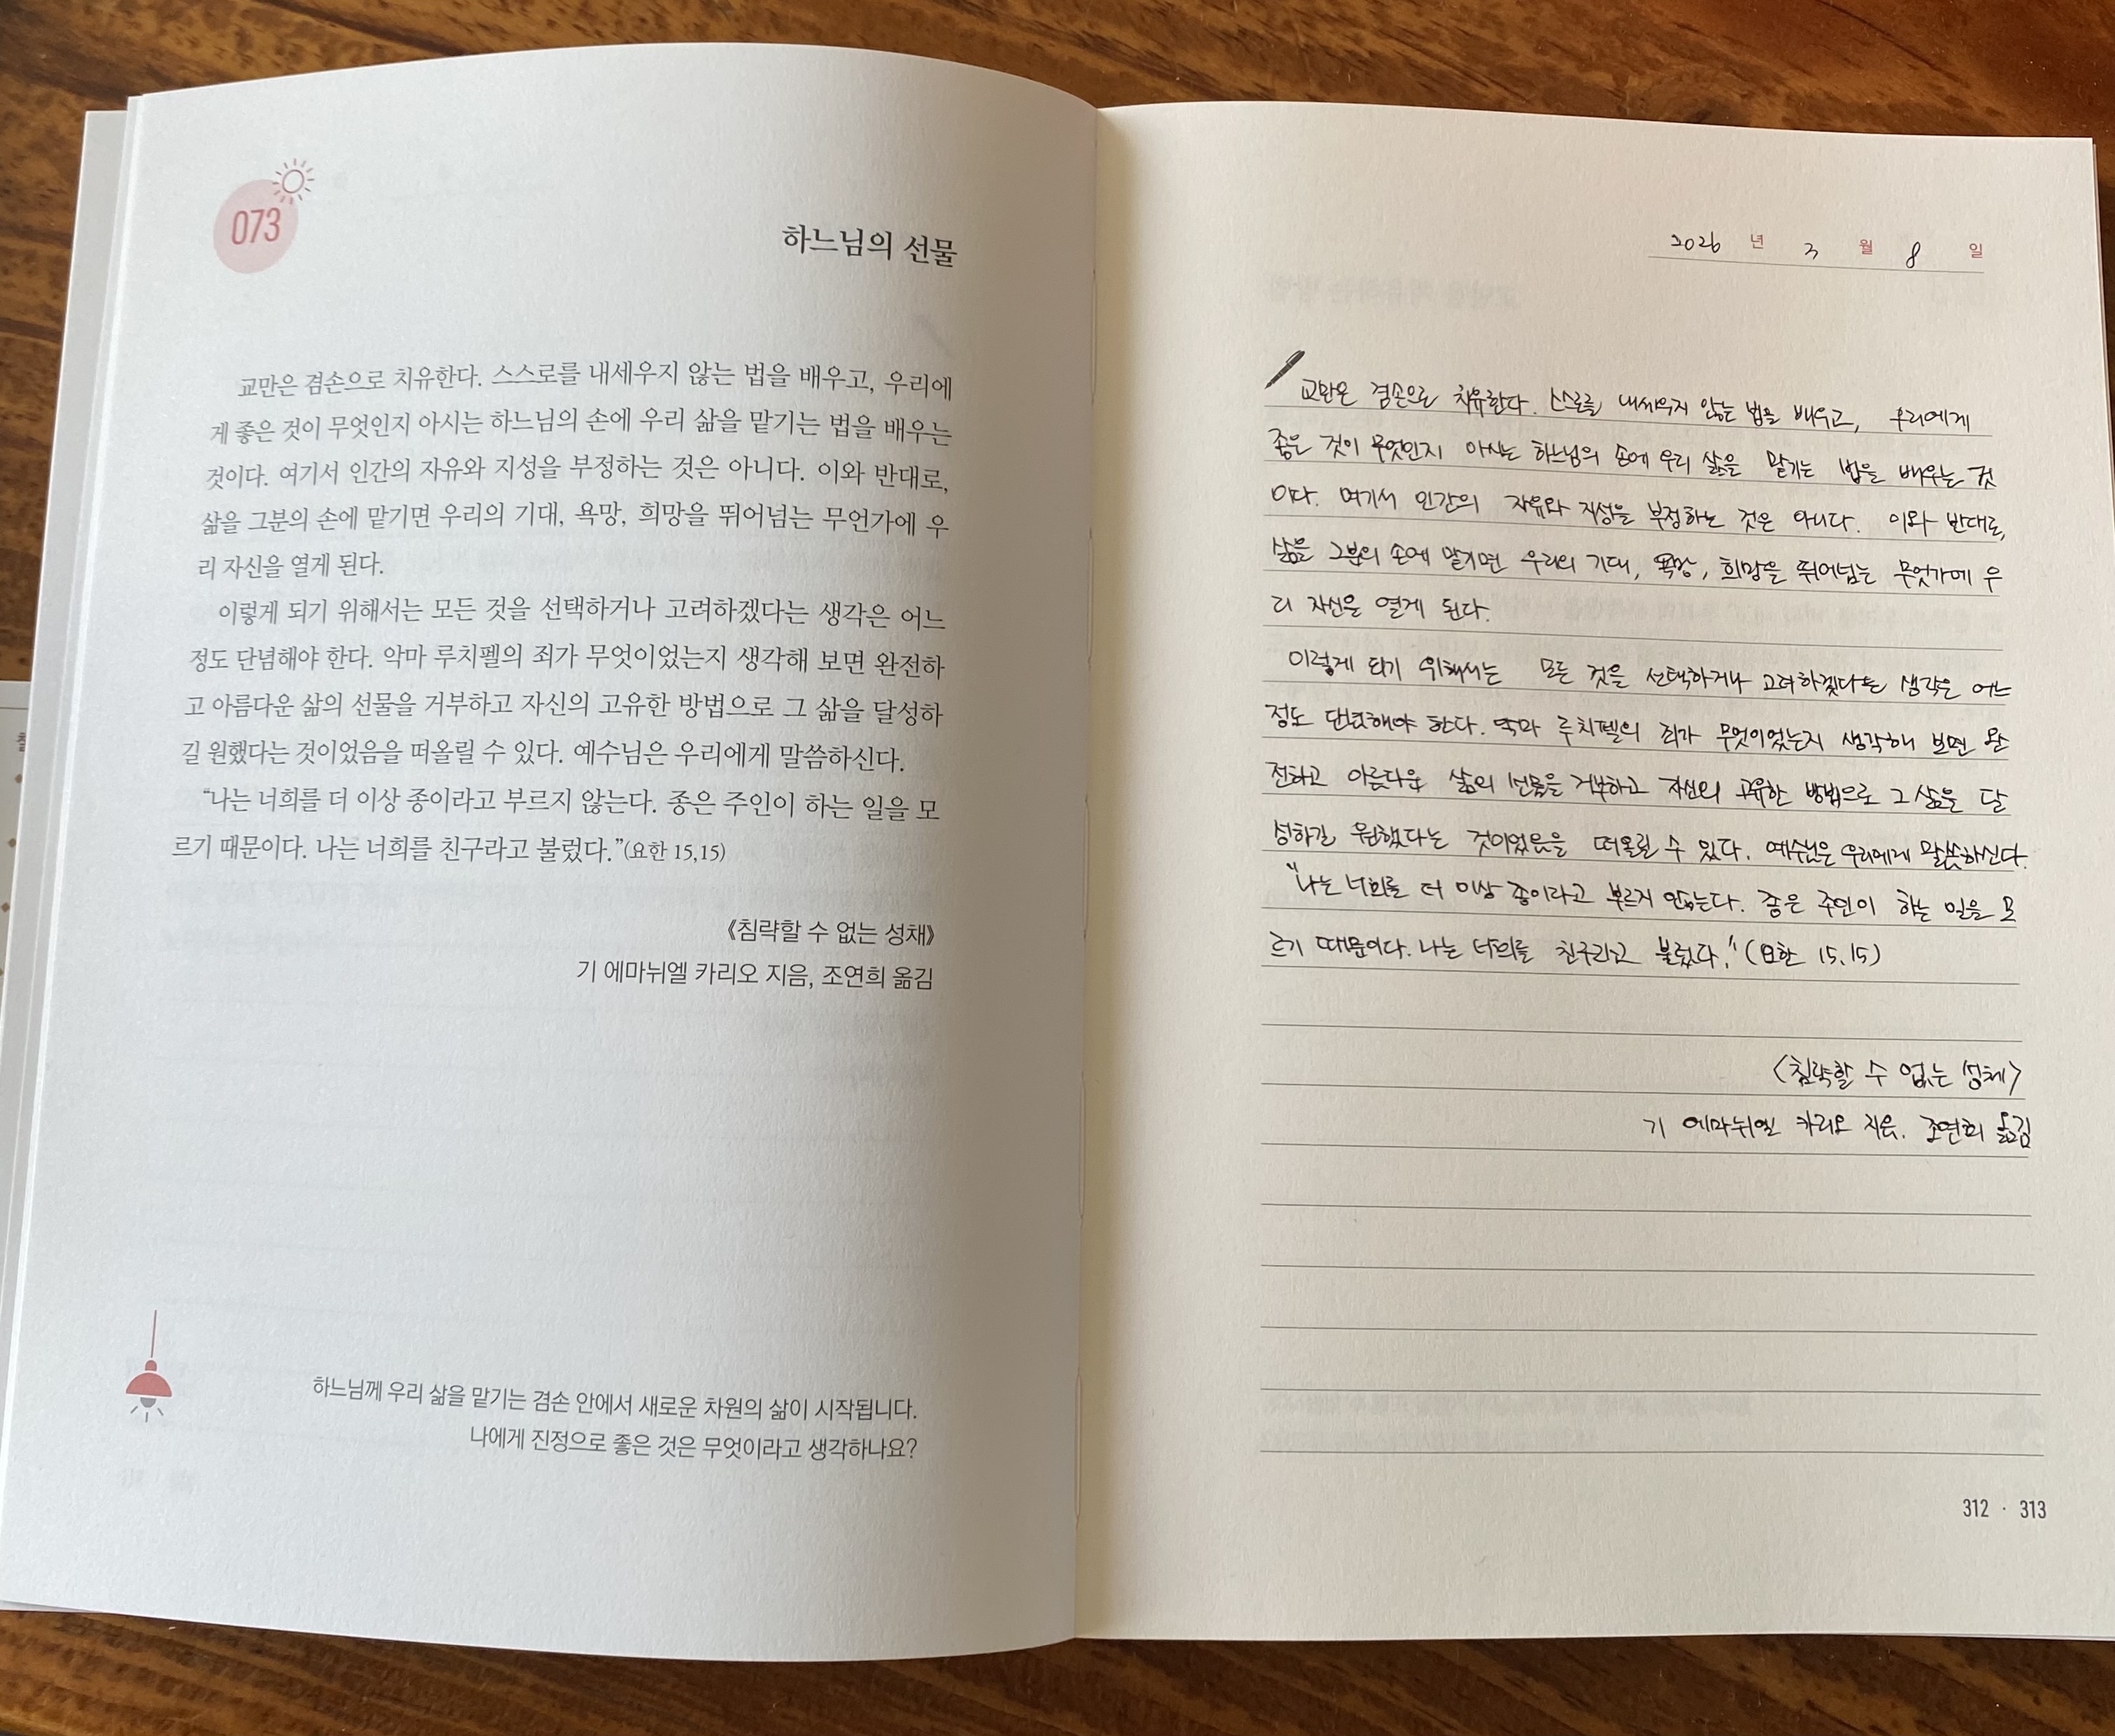 073
하느님의 선물
교만은 겸손으로 치유한다. 스스로를 내세우지 않는 법을 배우고, 우리에
게 좋은 것이 무엇인지 아시는 하느님의 손에 우리 삶을 맡기는 법을 배우는
것이다. 여기서 인간의 자유와 지성을 부정하는 것은 아니다. 이와 반대로,
삶을 그분의 손에 맡기면 우리의 기대, 욕망, 희망을 뛰어넘는 무언가에 우
리 자신을 열게 된다.
이렇게 되기 위해서는 모든 것을 선택하거나 고려하겠다는 생각은 어느
정도 단념해야 한다. 악마 루치펠의 죄가 무엇이었는지 생각해 보면 완전하
고 아름다운 삶의 선물을 거부하고 자신의 고유한 방법으로 그 삶을 달성하
길 원했다는 것이었음을 떠올릴 수 있다. 예수님은 우리에게 말씀하신다.
“나는 너희를 더 이상 종이라고 부르지 않는다. 종은 주인이 하는 일을 모
르기 때문이다. 나는 너희를 친구라고 불렀다.”(요한 15,15)
《침략할 수 없는 성채》
기 에마뉘엘 카리오 지음, 조연희 옮김
하느님께 우리 삶을 맡기는 겸손 안에서 새로운 차원의 삶이 시작됩니다.
나에게 진정으로 좋은 것은 무엇이라고 생각하나요?
2026 년 3 월 8 일
교만은 겸손으로 치유한다. 스스로를 내세우지 않는 법을 배우고, 우리에게
좋은 것이 무엇인지 아시는 하느님의 손에 우리 삶을 맡기는 법을 배우는 것
이다. 여기서 인간의 자유와 지성을 부정하는 것은 아니다. 이와 반대로,
삶을 그분의 손에 맡기면 우리의 기대, 욕망, 희망을 뛰어넘는 무엇가에 우
리 자신을 열게 된다.
이렇게 되기 위해서는 모든 것을 선택하거나 고려하겠다는 생각은 어느
정도 단념해야 한다. 악마 루치펠의 죄가 무엇이었는지 생각해 보면 완
전하고 아름다운 삶의 선물을 거부하고 자신의 고유한 방법으로 그 삶을 달
성하길 원했다는 것이었음을 떠올릴 수 있다. 예수님은 우리에게 말씀하신다.
"나는 너희를 더 이상 종이라고 부르지 않는다. 종은 주인이 하는 일을 모
르기 때문이다. 나는 너희를 친구라고 불렀다." (요한 15,15)
<침략할 수 없는 성체>
기 에마뉘엘 카리오 지음. 조연희 옮김
312 · 313